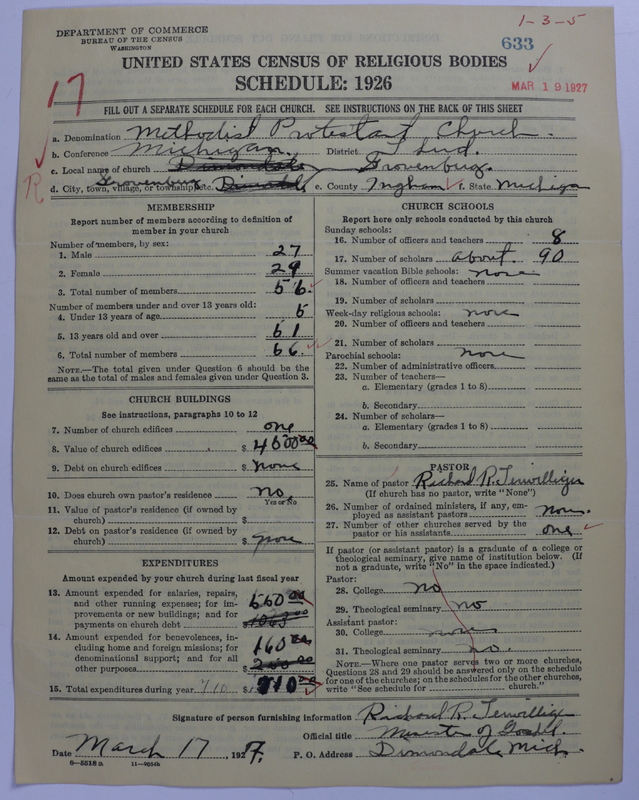 1-3-5
DEPARTMENT OF COMMERCE
BUREAU OF THE CENSUS
WASHINGTON
633
UNITED STATES CENSUS OF RELIGIOUS BODIES
SCHEDULE: 1926
MAR 19 1927
17
R
FILL OUT A SEPARATE SCHEDULE FOR EACH CHURCH. SEE INSTRUCTIONS ON THE BACK OF THIS SHEET
a. Denomination Methodist Protestant Church.
b. Conference Michigan. District
c. Local name of church Dimondale Grovenburg.
d. City, town, village, or township, etc. Grovenburg Dimondale e. County Ingham f. State Michigan
MEMBERSHIP
Report number of members according to definition of
member in your church
Number of members, by sex:
1. Male 27
2. Female 29
3. Total number of members 56
Number of members under and over 13 years old:
4. Under 13 years of age 5
5. 13 years old and over 51
6. Total number of members 56
NOTE.—The total given under Question 6 should be
same as the total of males and females given under Question 3.
CHURCH BUILDINGS
See instructions, paragraphs 10 to 12
7. Number of church edifices one
8. Value of church edifices $ 4500 00
9. Debt on church edifices $ none
10. Does church own pastor's residence no
Yes or No
11. Value of pastor's residence (if owned by
church) $
12. Debt on pastor's residence (if owned by
church) $ none
EXPENDITURES
Amount expended by your church during last fiscal year
13. Amount expended for salaries, repairs,
and other running expenses; for im-
provements or new buildings; and for
payments on church debt 550 00
$ 1063 00
14. Amount expended for benevolences, in-
cluding home and foreign missions; for
denominational support; and for all
other purposes 160 00
15. Total expenditures during year 710 $ 710 00
CHURCH SCHOOLS
Report here only schools conducted by this church
Sunday schools:
16. Number of officers and teachers 8
17. Number of scholars about 90
Summer vacation Bible schools: none
18. Number of officers and teachers
19. Number of scholars
Week-day religious schools: none
20. Number of officers and teachers
21. Number of scholars
Parochial schools: none
22. Number of administrative officers
23. Number of teachers—
a. Elementary (grades 1 to 8)
b. Secondary
24. Number of scholars—
a. Elementary (grades 1 to 8)
b. Secondary
PASTOR
25. Name of pastor Richard R. Terwilliger
(If church has no pastor, write "None")
26. Number of ordained ministers, if any, em-
ployed as assistant pastors none.
27. Number of other churches served by the
pastor or his assistants one
If pastor (or assistant pastor) is a graduate of a college or
theological seminary, give name of institution below. (If
not a graduate, write "No" in the space indicated.)
Pastor:
28. College no
29. Theological seminary no
Assistant pastor:
30. College none
31. Theological seminary no.
NOTE.—Where one pastor served two or more churches,
Questions 28 and 29 should be answered only on the schedule
for one of the churches; on the schedules for the other churches,
write "See schedule for church."
Signature of person furnishing information Richard R. Terwilliger
Official title Minister of Gospel.
Date March 17, 1927. P. O. Address Dimondale Mich.
8—5518 a 11—9034b